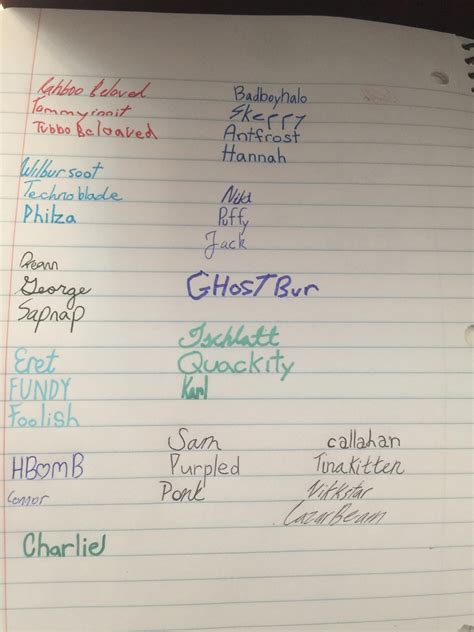 Rahboo Beloved
Tommyinnit
Tubbo Beloaved
Wilbursoot
Technoblade
Philza
Dream
George
Sapnap
Eret
FUNDY
Foolish
HBomB
Connor
Charlie
Badboyhalo
Skeppy
Antfrost
Hannah
Niki
Puffy
Jack
GHOSTBur
Jschlatt
Quackity
Karl
Sam
Purpled
Ponk
callahan
Tinakitten
Vikkstar
LazarBeam